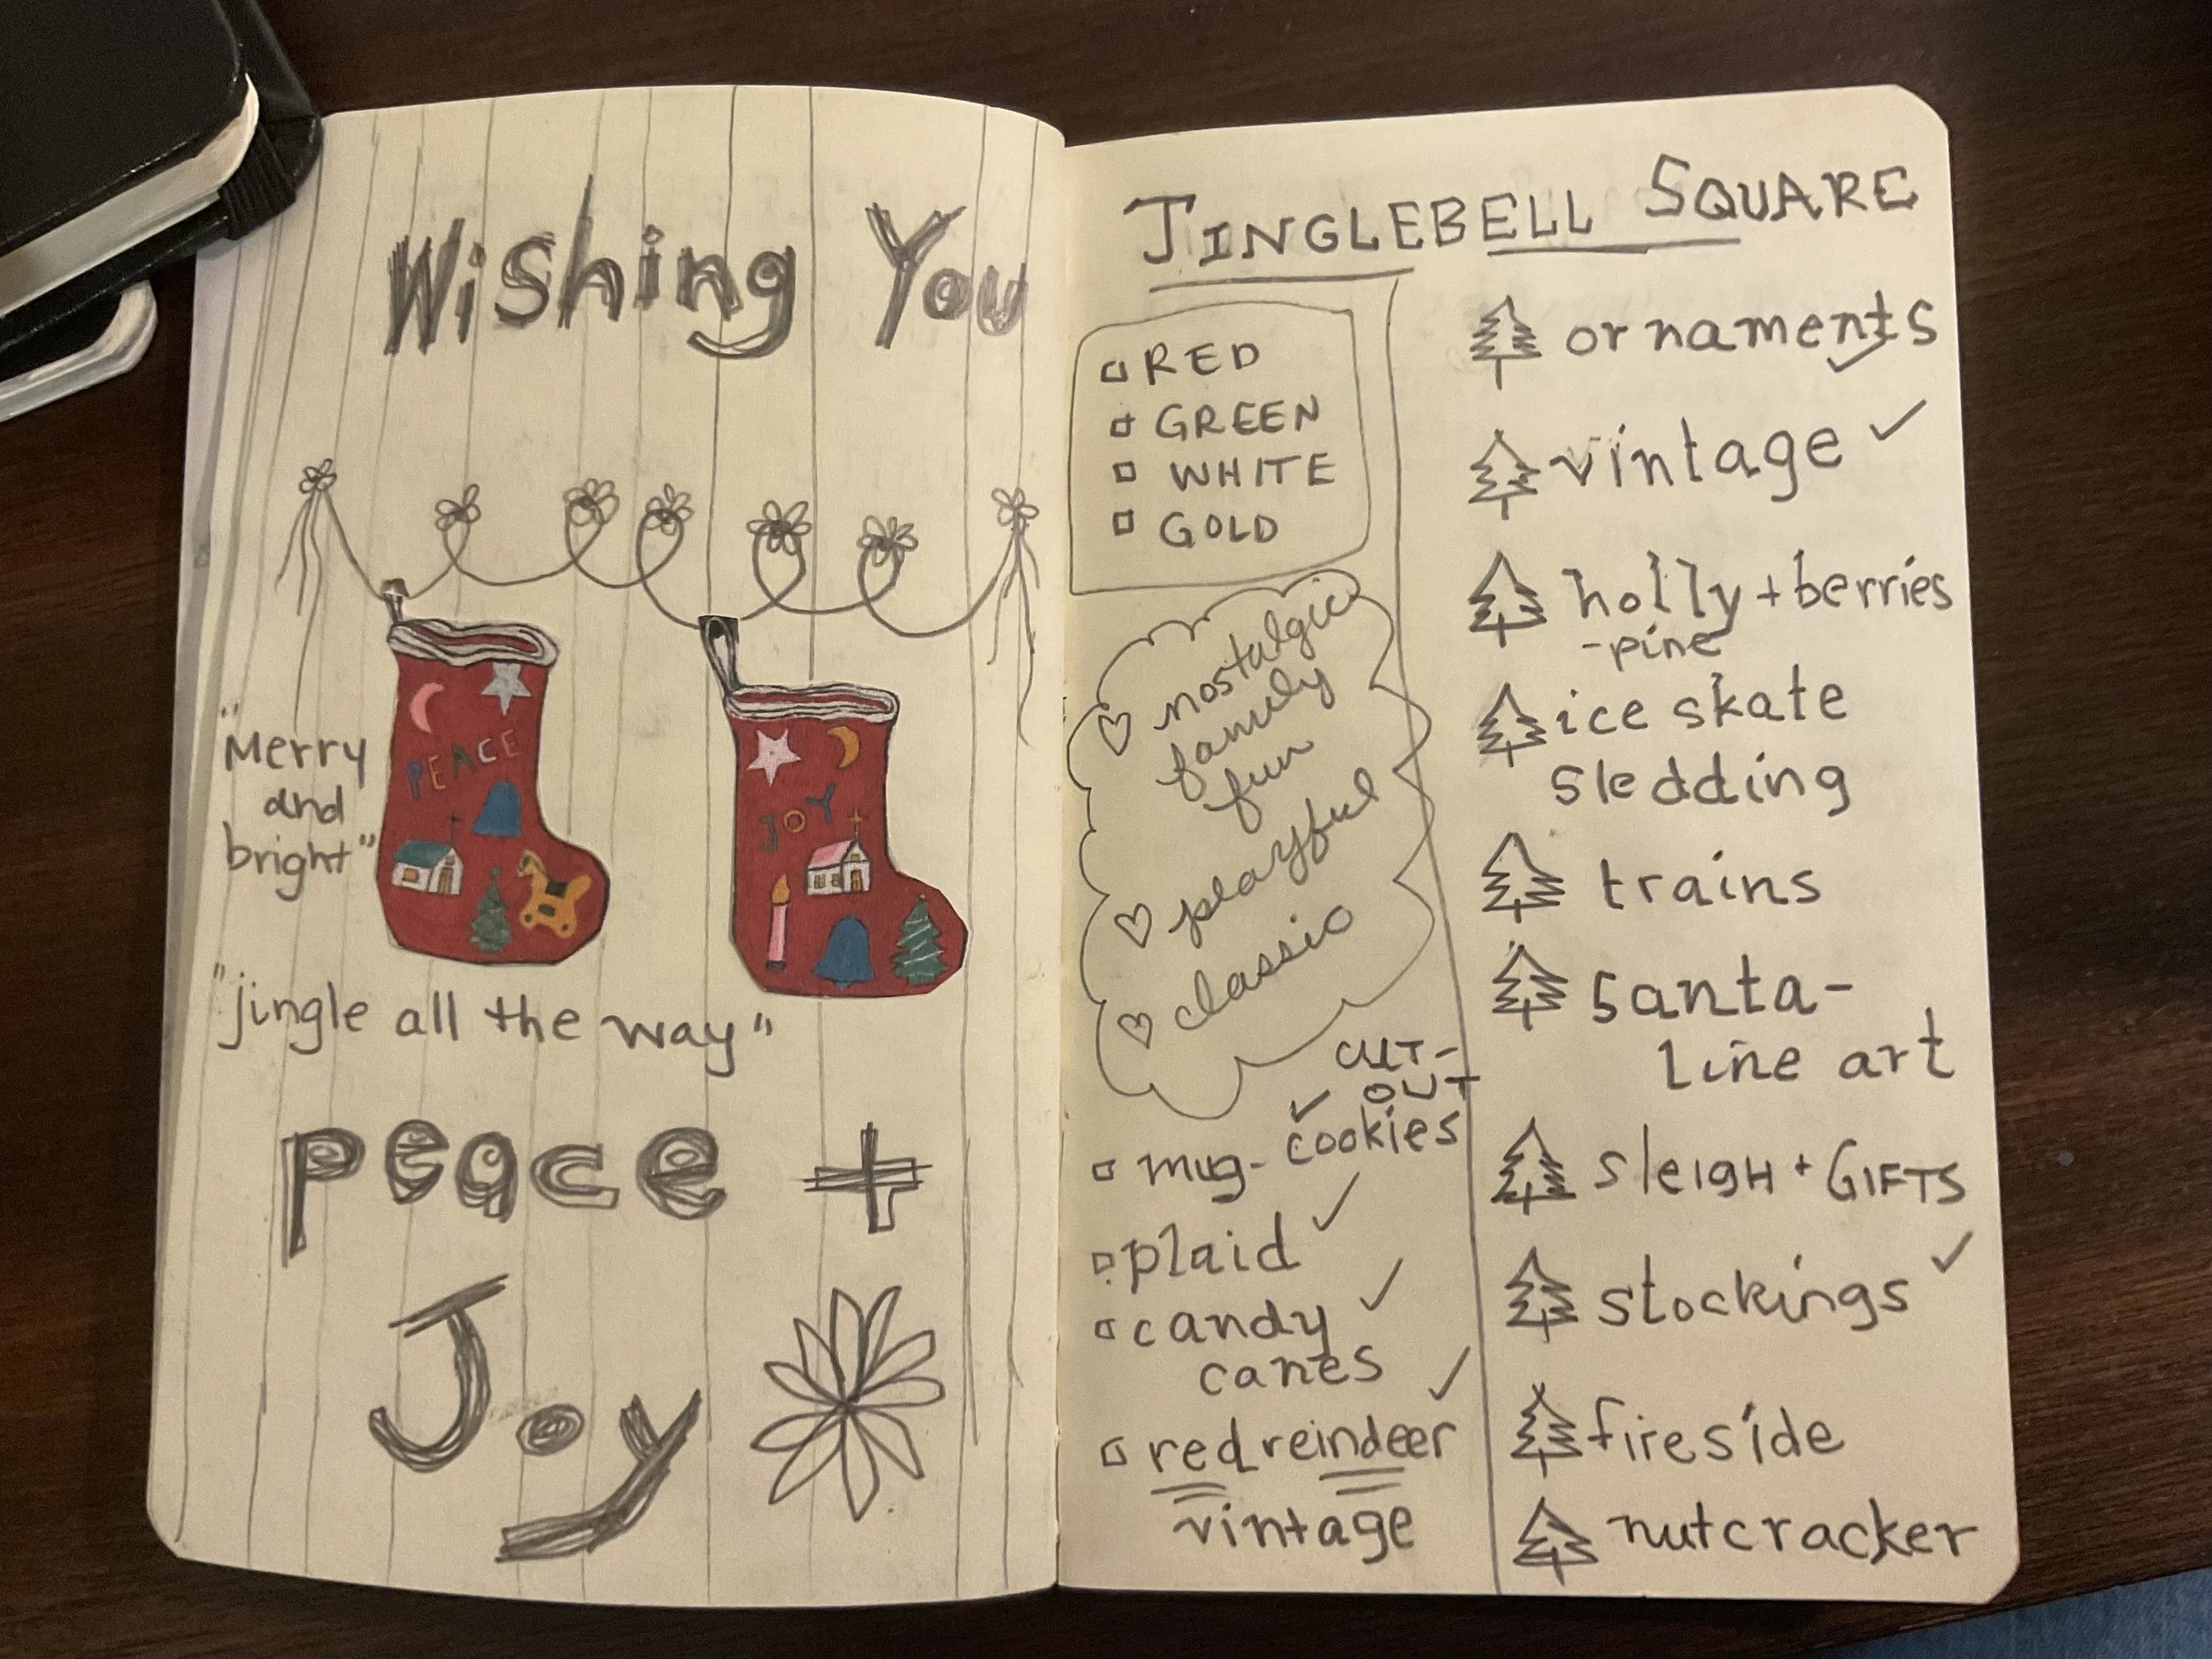 Wishing You
"Merry
and
bright"
PEACE
JOY
"jingle all the way"
peace +
Joy
JINGLEBELL SQUARE
RED
GREEN
WHITE
GOLD
♡ nostalgic
family
fun
♡ playful
♡ classic
mug- ✓ CUT-
OUT
cookies
plaid ✓
candy ✓
canes
red reindeer ✓
vintage
ornaments ✓
vintage ✓
holly + berries
-pine
ice skate
sledding
trains
santa-
line art
sleigH + GIFTS
stockings ✓
fireside
nutcracker